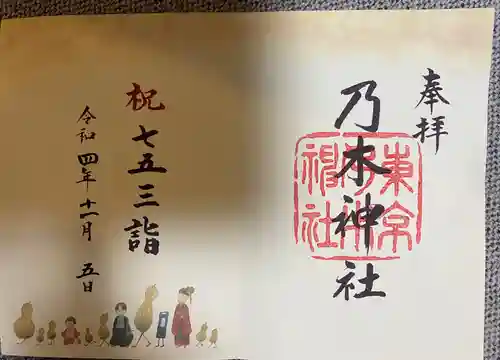 奉拝
乃木神社
東京
乃木
神社
祝
七五三詣
令和四年十一月五日